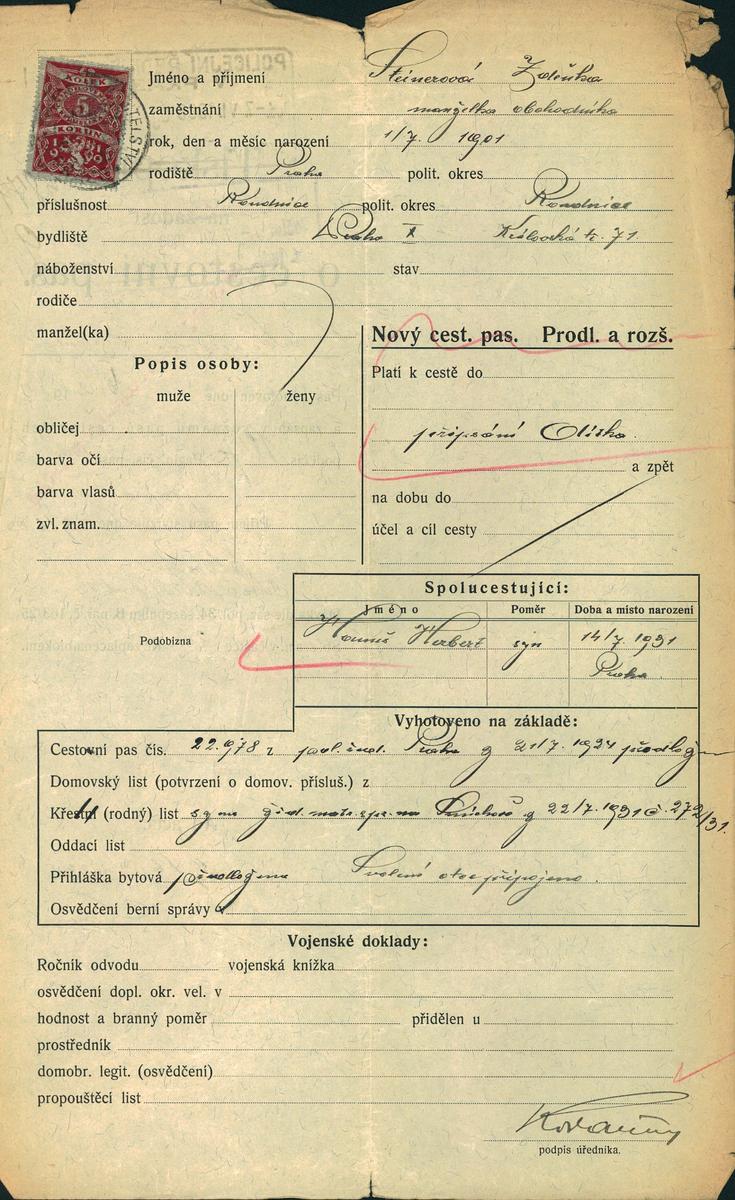 KOLEK
5
KORUN
Jméno a příjmení Steinerová Zdeňka
zaměstnání manželka obchodníka
rok, den a měsíc narození 1/7 1901
rodiště Praha polit. okres
příslušnost Roudnice polit. okres Roudnice
bydliště Praha X Královská tř. 71
náboženství stav
rodiče
manžel(ka)
Nový cest. pas. Prodl. a rozš.
Popis osoby:
muže ženy
obličej
barva očí
barva vlasů
zvl. znam.
Platí k cestě do
připsání dítka
a zpět
na dobu do
účel a cíl cesty
Podobizna
Spolucestující:
Jméno Poměr Doba a místo narození
Hanuš Herbert syn 14/7. 1931
Praha
Vyhotoveno na základě:
Cestovní pas čís. 22.978 z pol. řed. Praha 21/7. 1927
Domovský list (potvrzení o domov. přísluš.) z
Křestní (rodný) list 22/7. 1931 č. 272/31.
Oddací list
Přihláška bytová předložena Svolení otce připojeno.
Osvědčení berní správy
Vojenské doklady:
Ročník odvodu vojenská knížka
osvědčení dopl. okr. vel. v
hodnost a branný poměr přidělen u
prostředník
domobr. legit. (osvědčení)
propouštěcí list
podpis úředníka.